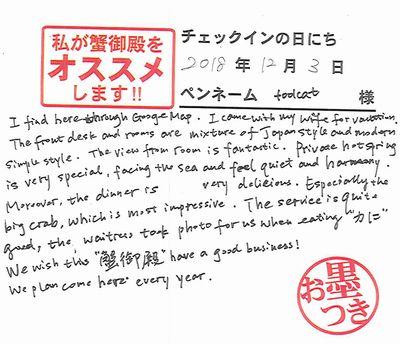 私が蟹御殿を
オススメ
します!!
チェックインの日にち
2018 年 12 月 3 日
ペンネーム foodcat 様
I find here through Google Map. I came with my wife for vacation.
The front desk and rooms are mixture of Japan style and modern
simple style. The view from room is fantastic. Private hotspring
is very special, facing the sea and feel quiet and harmony.
Moreover, the dinner is very delicious. Especially the
big crab, which is most impressive. The service is quite
good, the waitress took photo for us when eating "カニ"
We wish this "蟹御殿" have a good business!
We plan come here every year.
お墨つき